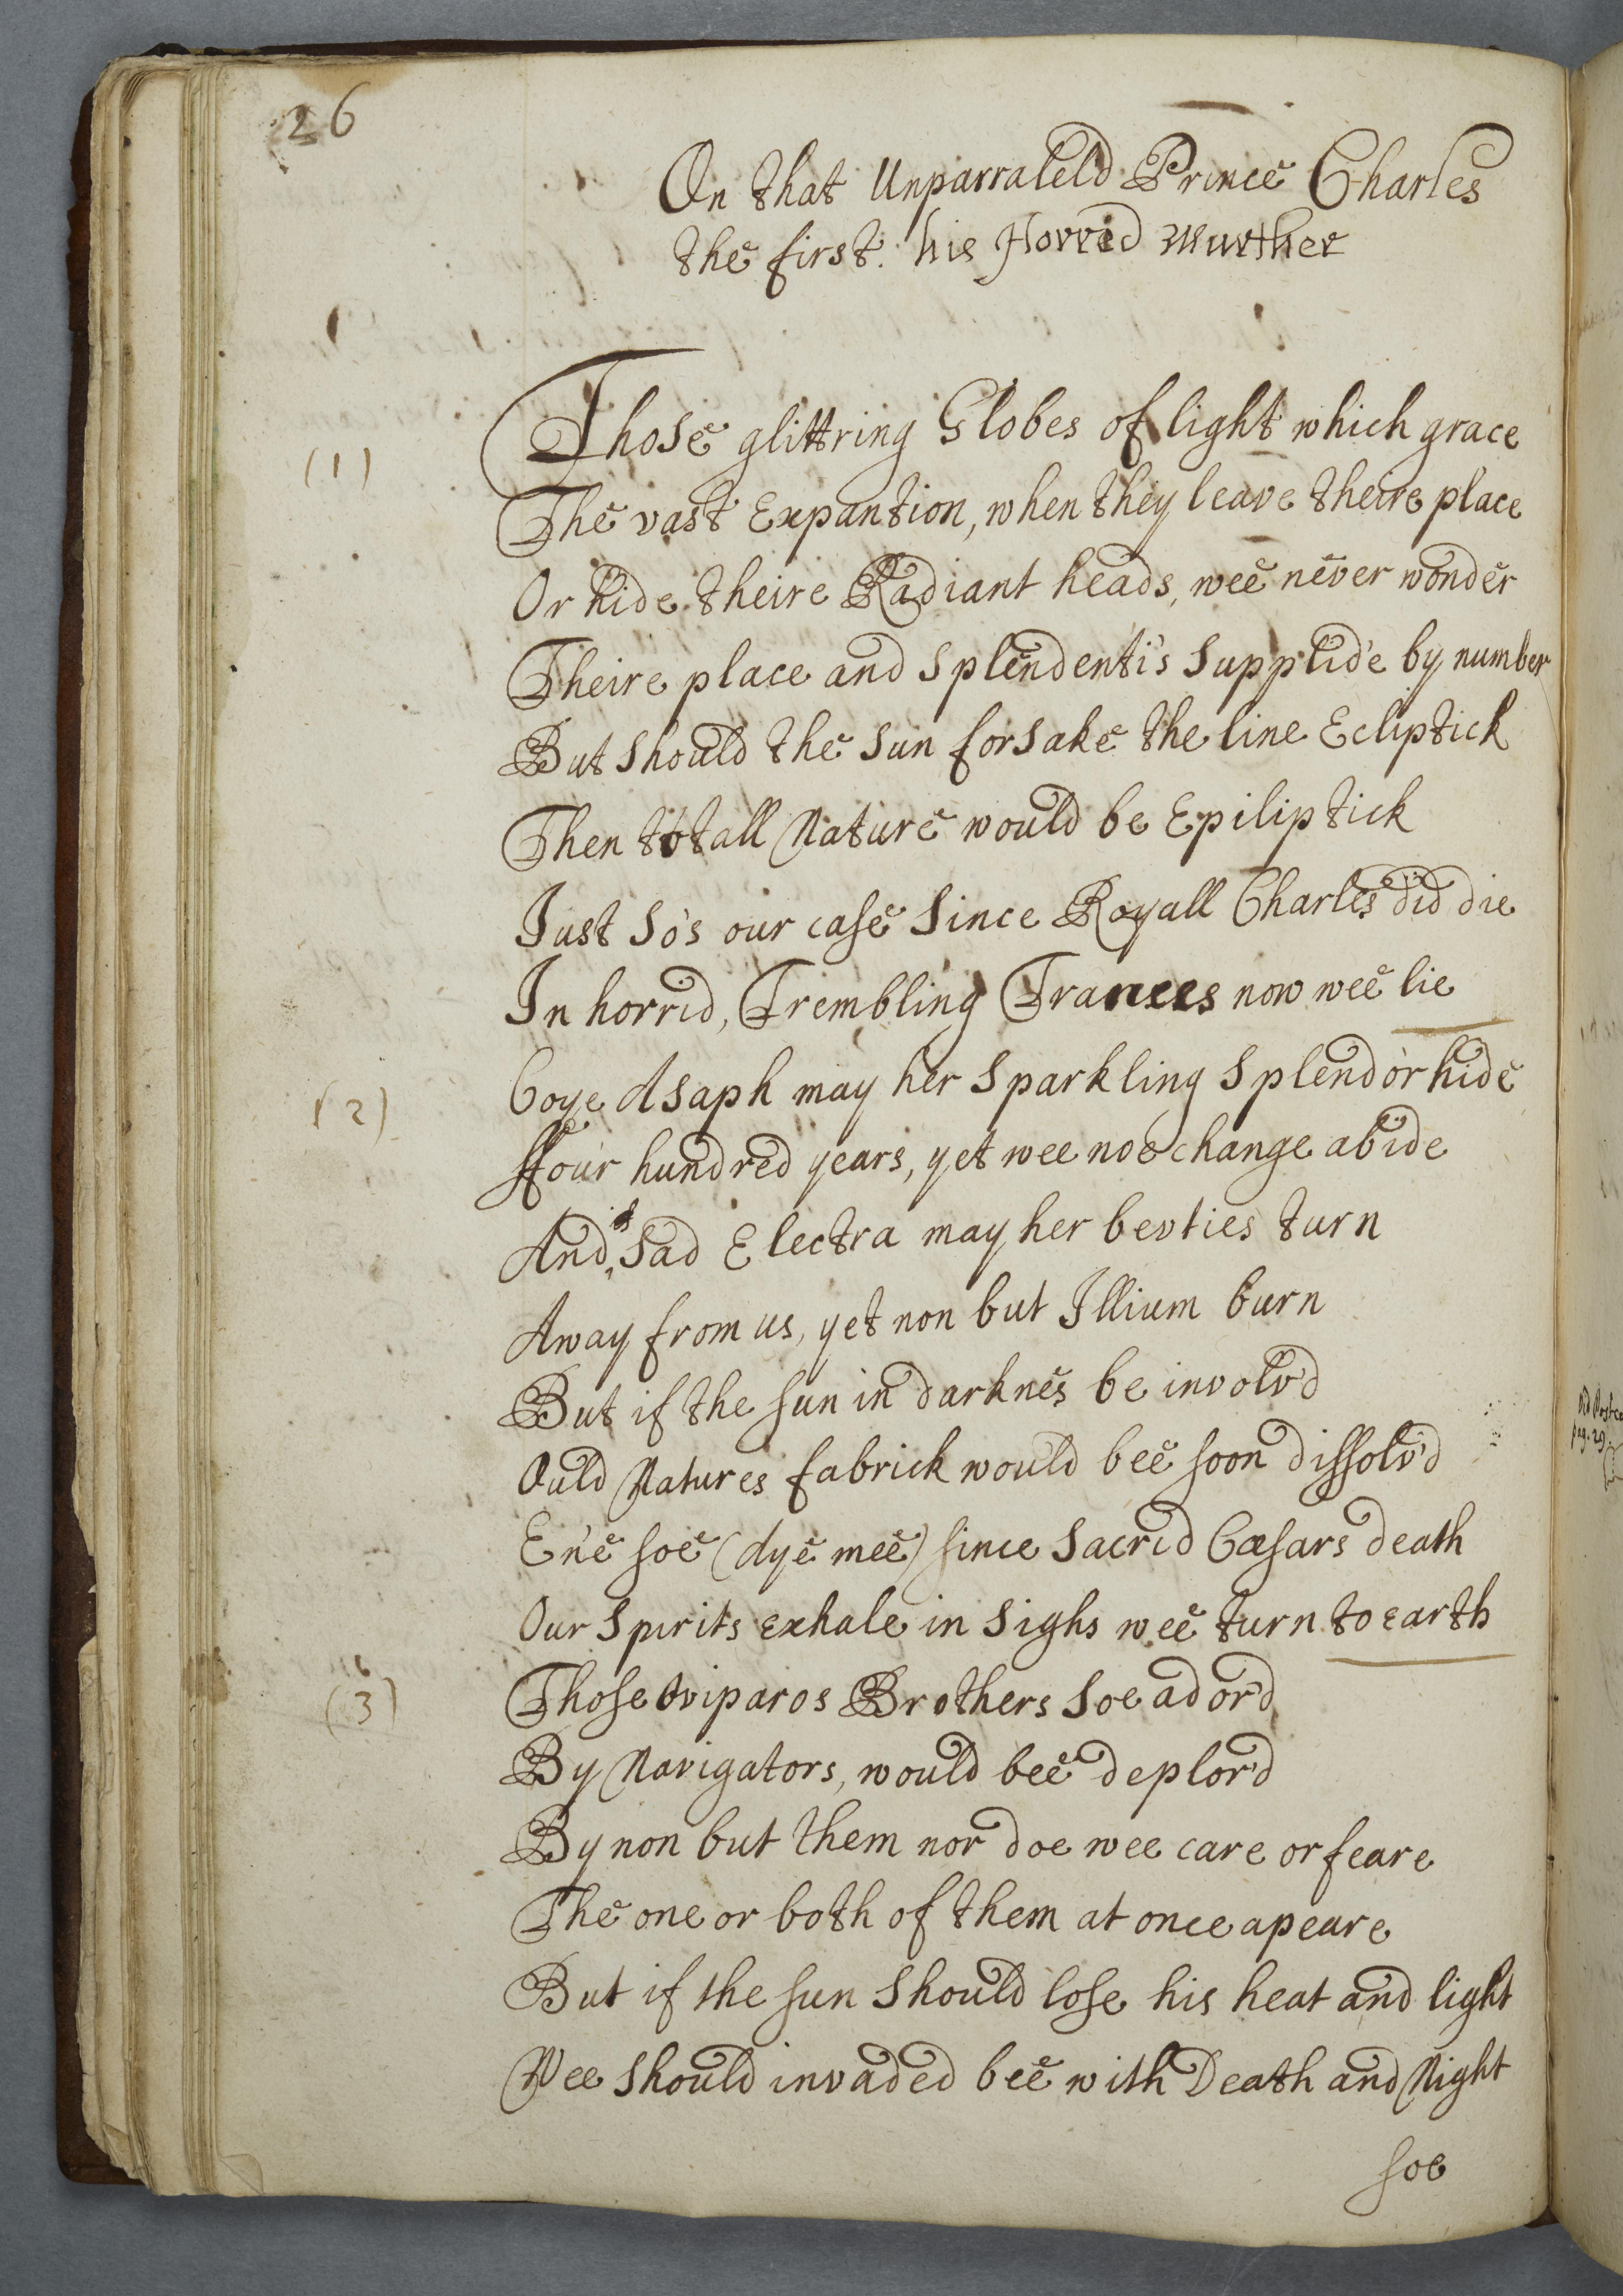 26
On that Unparraleld Prince Charles
the first. his Horrid Murther
(1)
Those glittring Globes of light which grace
The vast Expantion, when they leave theire place
Or hide theire Radiant heads, wee never wonder
Theire place and Splendenti's Supplide by number
But Should the Sun forSake the line Ecliptick
Then totall Nature would be Epiliptick
Just So's our case Since Royall Charles did die
In horrid, Trembling Trances now wee lie
(2)
Coye Asaph may her Sparkling Splendor hide
ffour hundred years, yet wee noe change abide
And Sad Electra may her bevties turn
Away from us, yet non but Illium burn
But if the sun in darknes be involv'd
Ould Natures fabrick would bee soon dissolv'd
En'e soe (dye mee) since Sacrid Cæsars death
Our Spirits exhale in Sighs wee turn to earth
(3)
Those Oviparos Brothers Soe ador'd
By Navigators, would bee deplor'd
By non but them nor doe wee care or feare
The one or both of them at once apeare
But if the sun Should lose his heat and light
Wee Should invaded bee with Death and Night
soe
pag. 29